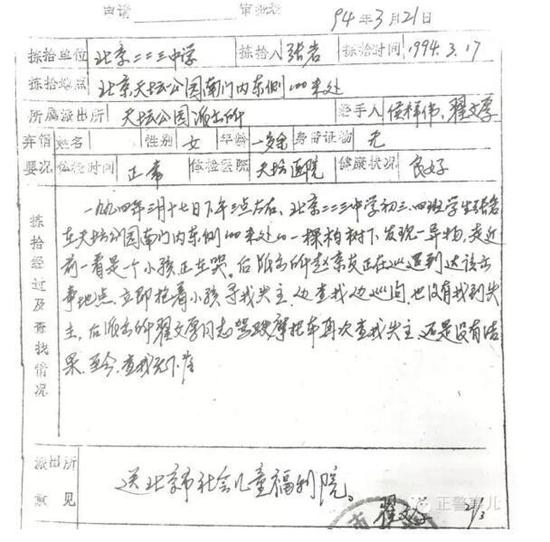 申请 审批表
94年3月21日
拣拾单位 北京二二三中学 拣拾人 张岩 拣拾时间 1994.3.17
拣拾地点 北京天坛公园南门内东侧100米处
所属派出所 天坛公园派出所 经手人 侯祥伟、翟文厚
弃婴概况 姓名 性别 女 年龄 一岁余 身份证物 无
体检时间 正常 体检医院 天坛医院 健康状况 良好
拣拾经过及查找情况
一九九四年三月十七日下午三点左右，北京二二三中学初三.四班学生张岩
在天坛公园南门内东侧100米处的一棵柏树下，发现一异物，走近
前一看是个小孩，正在哭。后派出所赵京友正在巡逻到达该出
事地点，立即抱着小孩，寻找失主，边查找边巡问，也没有找到失
主，后派出所翟文厚同志驾驶摩托车再次查找失主，还是没有结
果，至今，查找无下落
派出所意见 送北京市社会儿童福利院。
翟文厚 21/3
正警事儿